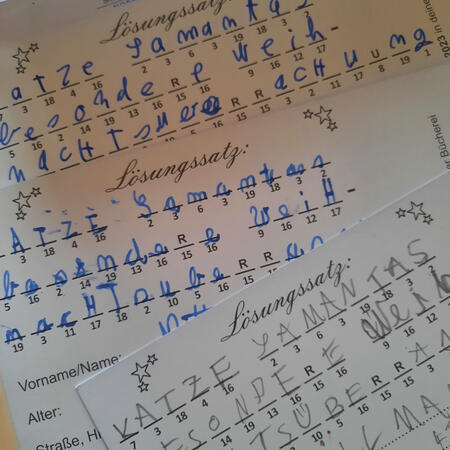 Lösungssatz:
ATZE Samanta
3 18 4 16 2 3 6 3 19 18 3
besonde R e Weih-
5 16 2 14 19 13 16 15 16 9 16 12 17
R R ACHUUNG
16 15 15 3 2 11 17 8 19 1
2023
in deine
er Bücherei
Lösungssatz:
ATZE Samantas
3 18 4 16 2 3 6 3 19 18 3 2
besonde R e WeiH-
5 16 2 14 19 13 16 15 16 9 16 12 17
nACHTSübe R R
19 3 11 17 18 2 10 5 16 15 15
Vorname/Name:
Alter:
Straße,
Lösungssatz:
KATZE SAMANTAS
7 3 18 4 16 2 3 6 3 19 18 3 2
ESONDE R E Weih
16 2 14 19 13 16 15 16 9 16 12
TSÜBE R R A
18 2 10 5 16 15 15 3